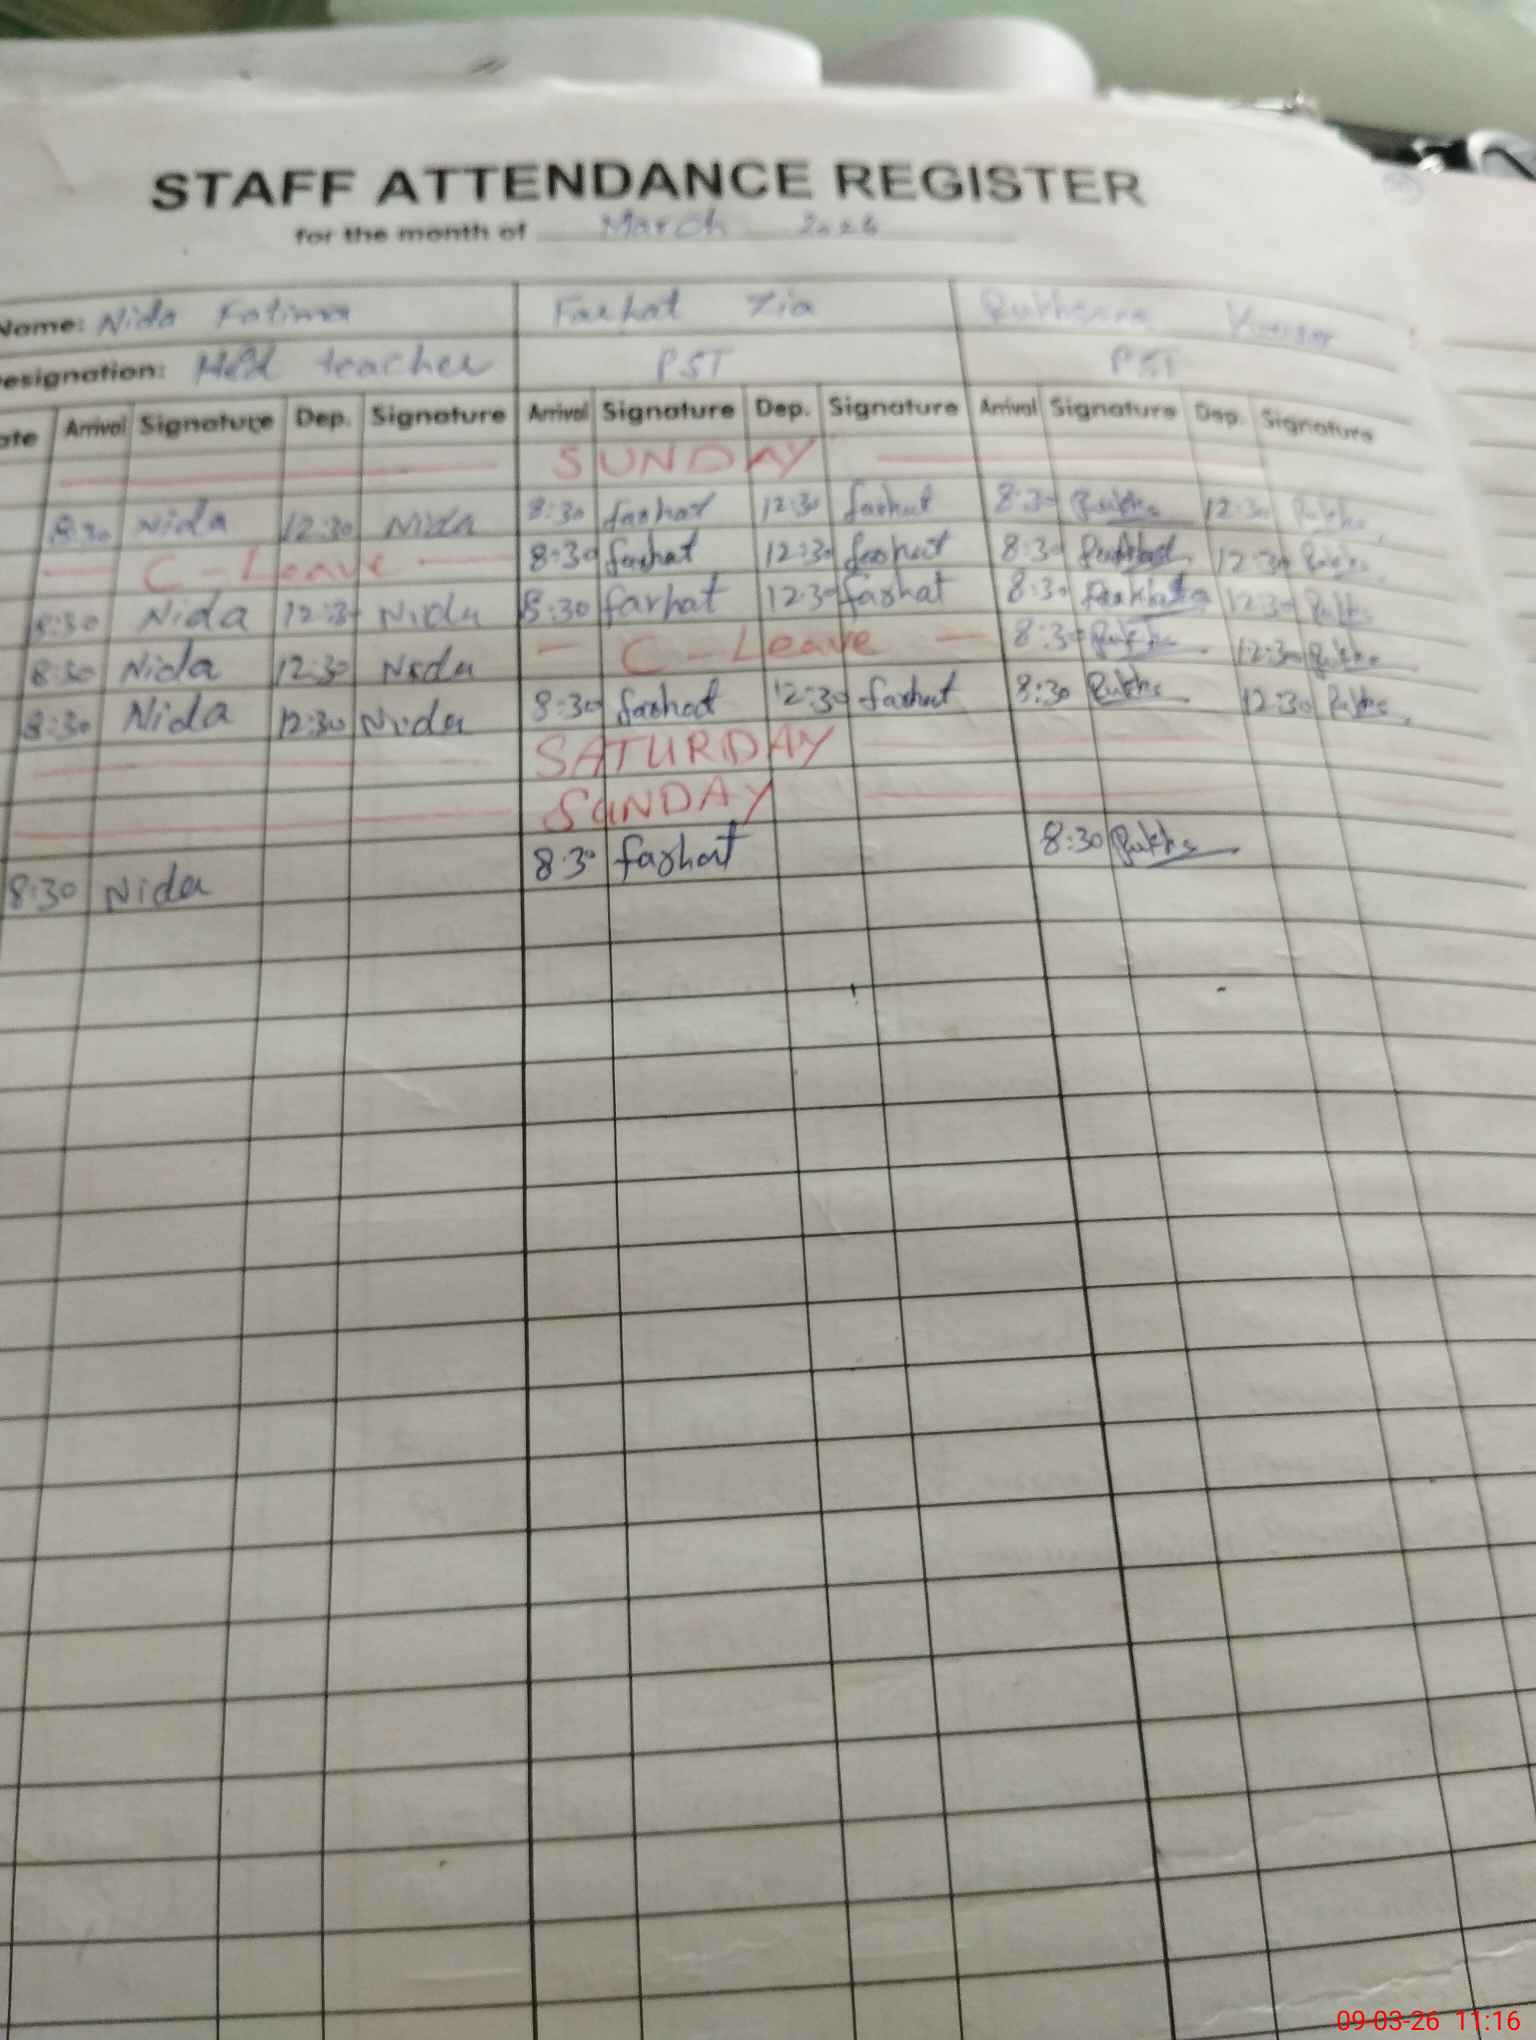 STAFF ATTENDANCE REGISTER
for the month of March 2026
Name: Nida Fatima Farhat Zia Rukhsana
Designation: Head teacher PST PST
ate Arrival Signature Dep. Signature Arrival Signature Dep. Signature Arrival Signature Dep. Signature
SUNDAY
8:30 Nida 12:30 Nida 8:30 farhat 12:30 farhat 8:30 Rukhs 12:30 Rukhs
C-Leave 8:30 farhat 12:30 farhat 8:30 12:30 Rukhs
8:30 Nida 12:30 Nida 8:30 farhat 12:30 farhat 8:30 12:30 Rukhs
8:30 Nida 12:30 Nida C-Leave 8:30 Rukhs 12:30 Rukhs
8:30 Nida 12:30 Nida 8:30 farhat 12:30 farhat 8:30 Rukhs 12:30 Rukhs
SATURDAY
SUNDAY
8:30 Nida 8:30 farhat 8:30 Rukhs
09-03-26 11:16